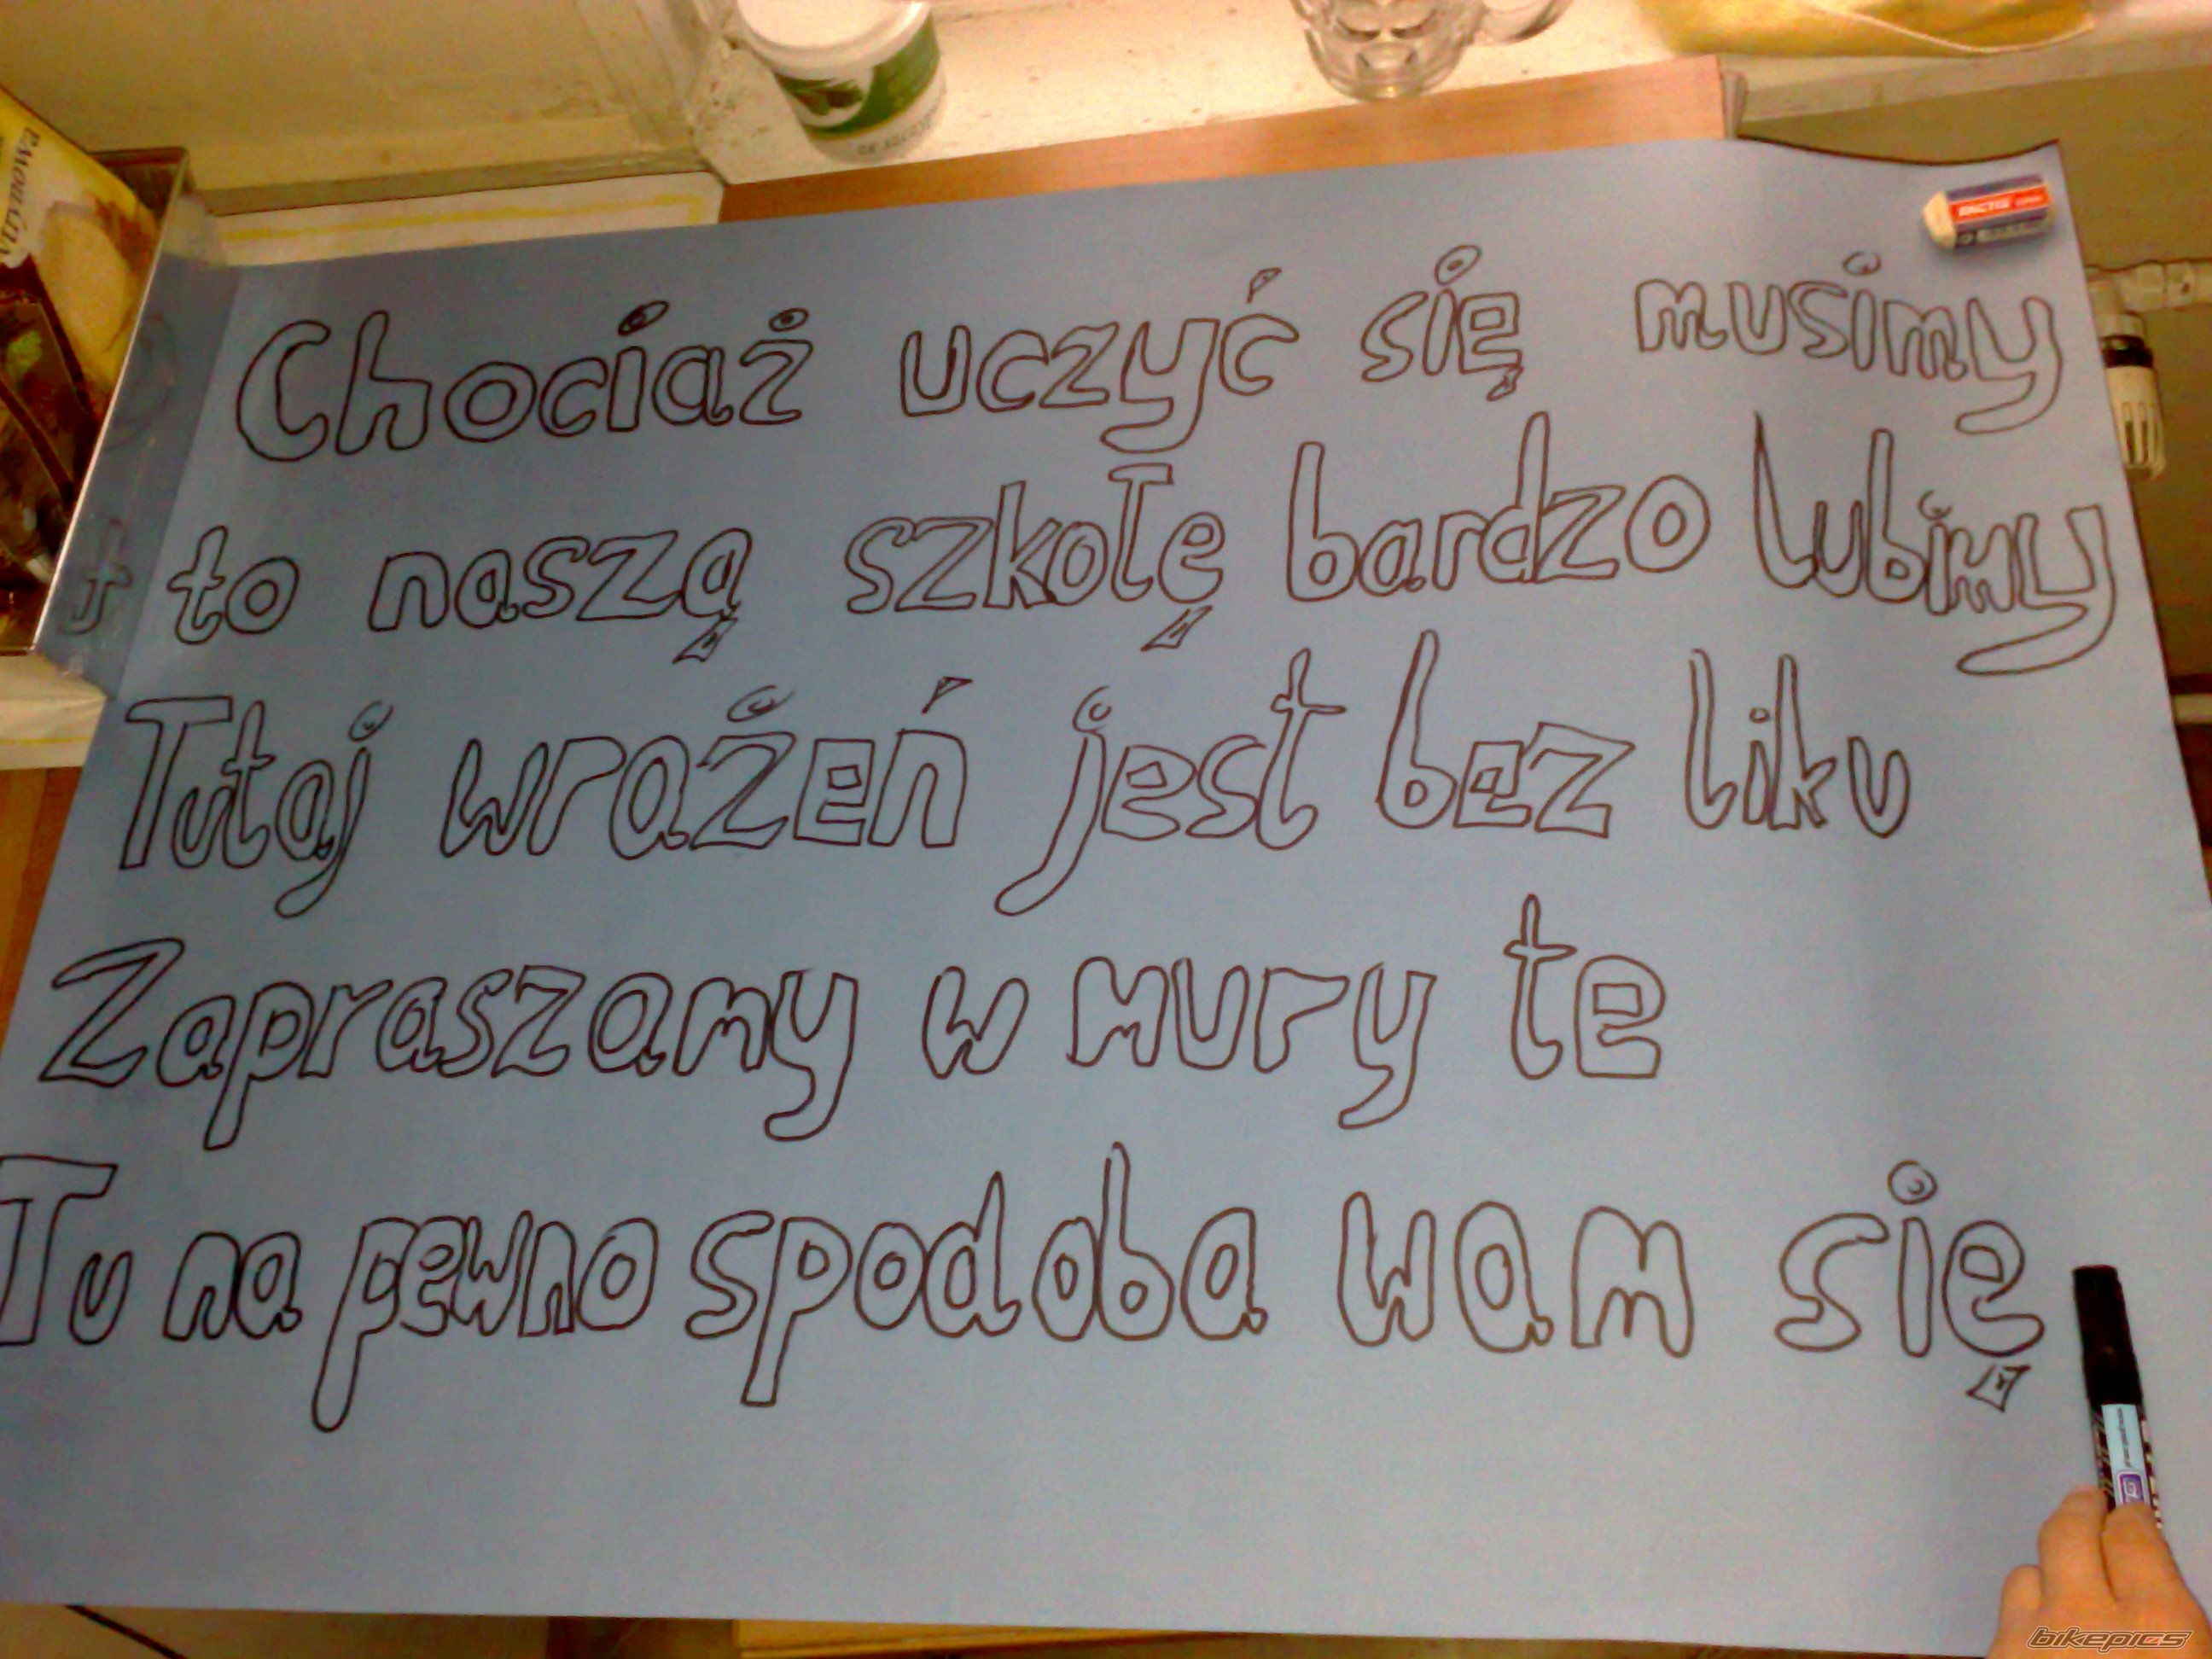 Chociaż uczyć się musimy
to naszą szkołę bardzo lubimy
Tutaj wrażeń jest bez liku
Zapraszamy w mury te
Tu na pewno spodoba wam się
bikepics